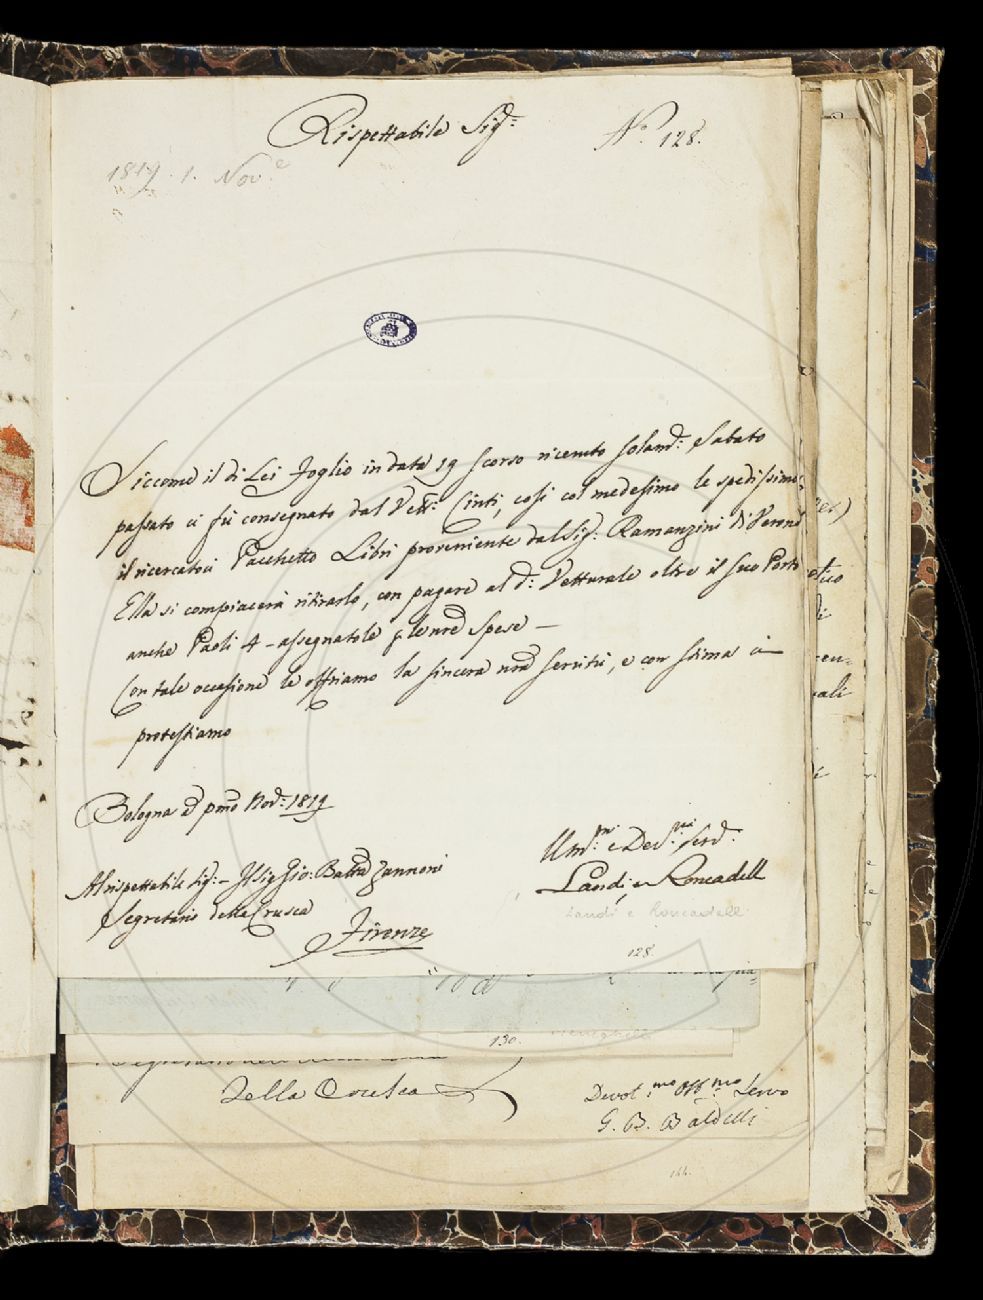 Rispettabile Sig.r
N.o 128.
1819. 1. Nov.e
Siccome il di Lei foglio in data 19 scorso ricevuto soland.o Sabato
passato ci fù consegnato dal Vett.e Cinti, così col medesimo le spedissimo
il ricercatoci Pacchetto Libri proveniente dal Sig. Ramanzini di Verona
Ella si compiacerà ritirarlo, con pagare al d.o Vetturale oltre il suo Porto
anche Paoli 4 - assegnatole p le nre Spese -
Con tale occasione le offriamo la sincera nra servitù, e con stima ci
protestiamo
Bologna pmo Nov. 1819
Um.mi e Dev.mi Serv.
Landi e Roncadelli
Al rispettabile Sig.- Il Sig Gio: Batta Zannoni
Segretario della Crusca
Firenze
Landi e Roncadelli
128.
130.
della Crusca
Devot.mo Obb.mo Servo
G. B. Baldelli
144.